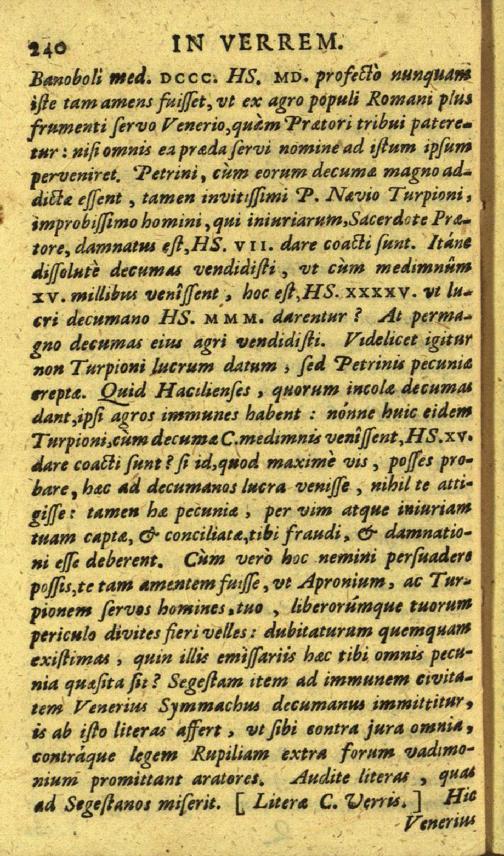 240 IN VERREM.
Banoboli med. DCCC. HS. MD. profectò nunquam
iſte tam amens fuiſſet, vt ex agro populi Romani plus
frumenti ſervo Venerio, quàm Prætori tribui patere-
tur: niſi omnis ea præda ſervi nomine ad iſtum ipſum
perveniret. Petrini, cùm eorum decumæ magno ad-
dictæ eſſent, tamen invitiſſimi P. Nævio Turpioni,
improbiſſimo homini, qui iniuriarum, Sacerdote Præ-
tore, damnatus eſt, HS. VII. dare coacti ſunt. Itáne
diſſolutè decumas vendidiſti, vt cùm medimnûm
XV. millibus venîſſent, hoc eſt, HS. XXXXV. vt lu-
cri decumano HS. MMM. darentur? At perma-
gno decumas eius agri vendidiſti. Videlicet igitur
non Turpioni lucrum datum, ſed Petrinis pecuniæ
ereptæ. Quid Hacilienſes, quorum incolæ decumas
dant, ipſi agros immunes habent: nónne huic eidem
Turpioni, cùm decumæ C. medimnis venîſſent, HS. XV.
dare coacti ſunt? ſi id, quod maximè vis, poſſes pro-
bare, hæc ad decumanos lucra veniſſe, nihil te atti-
giſſe: tamen hæ pecuniæ, per vim atque iniuriam
tuam captæ, & conciliatæ, tibi fraudi, & damnatio-
ni eſſe deberent. Cùm verò hoc nemini perſuadere
poſſis, te tam amentem fuiſſe, vt Apronium, ac Tur-
pionem ſervos homines, tuo, liberorúmque tuorum
periculo divites fieri velles: dubitaturum quemquam
exiſtimas, quin illis emiſſariis hæc tibi omnis pecu-
nia quæſita ſit? Segeſtam item ad immunem civita-
tem Venerius Symmachus decumanus immittitur,
is ab iſto literas affert, vt ſibi contra jura omnia,
contráque legem Rupiliam extra forum vadimo-
nium promittant aratores. Audite literas, quas
ad Segeſtanos miſerit. [Literæ C. Verris.] Hic
Venerius